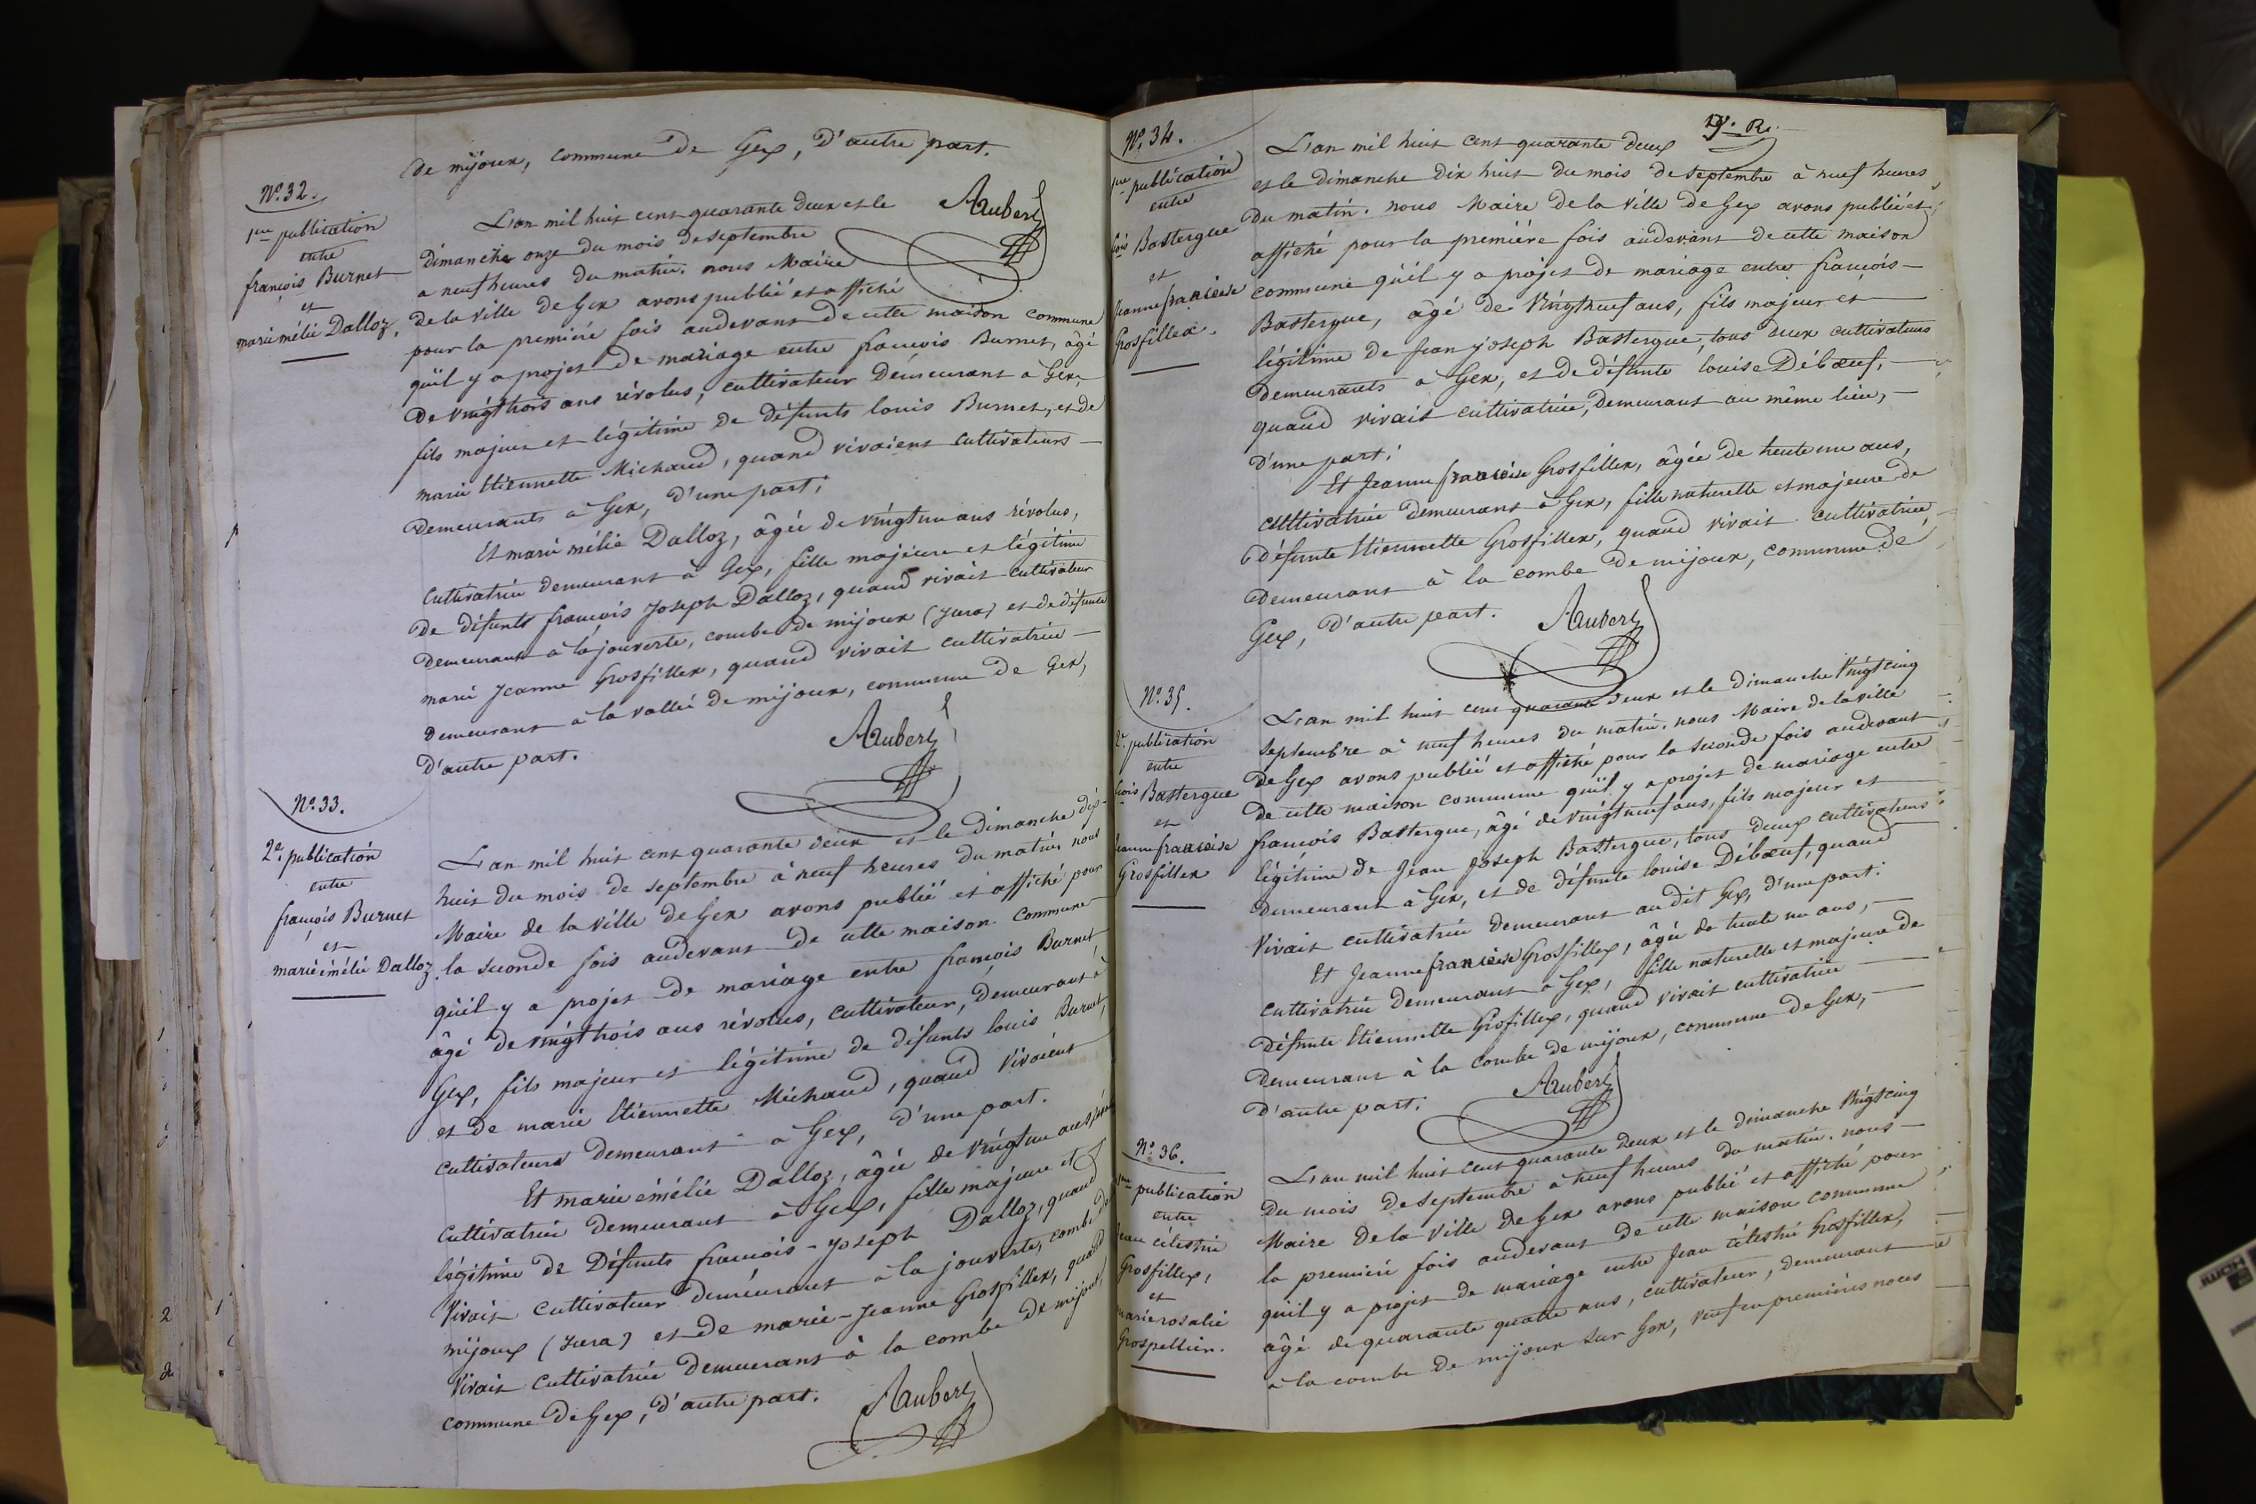 de mijoux, commune de Gex, d'autre part.
Aubert
N.º 32.
1re publication
entre
françois Burnet
et
marie mélie Dalloz,
L'an mil huit cent quarante deux et le
dimanche onze du mois de septembre
a neuf heures du matin. nous Maire
de la ville de Gex avons publié et affiché
pour la première fois audevant de cette maison commune
qu'il y a projet de mariage entre françois Burnet, âgé
de vingt trois ans révolus, cultivateur demeurant à Gex,
fils majeur et légitime de défunts louis Burnet, et de
marie Etiennette Michaud, quand vivaient cultivateurs
demeurants à Gex, d'une part;
Et marie mélie Dalloz, âgée de vingt un ans révolus,
cultivatrice demeurant à Gex, fille majeure et légitime
de défunts françois joseph Dalloz, quand vivait cultivateur
demeurant à la jouverte, combe de mijoux (Jura) et de défunte
marie jeanne Grosfillex, quand vivait cultivatrice
demeurant à la vallée de mijoux, commune de Gex,
d'autre part.
Aubert
N.º 33.
2e. publication
entre
françois Burnet
et
marie émélie Dalloz
L'an mil huit cent quarante deux et le dimanche dix
huit du mois de septembre à neuf heures du matin, nous
Maire de la ville de Gex avons publié et affiché pour
la seconde fois audevant de cette maison commune
qu'il y a projet de mariage entre françois Burnet
âgé de vingt trois ans révolus, cultivateur, demeurant à
Gex, fils majeur et légitime de défunts louis Burnet,
et de marie Etiennette Michaud, quand vivaient
cultivateurs demeurant à Gex, d'une part.
Et marie émélie Dalloz, âgée de vingt un ans révolus
cultivatrice demeurant à Gex, fille majeure et
légitime de Défunts françois-joseph Dalloz, quand
vivait cultivateur demeurant à la jouverte, combe de
mijoux (Jura) et de marie-jeanne Grosfillex, quand
vivait cultivatrice demeurant à la combe de mijoux,
commune de Gex, d'autre part.
Aubert
N.º 34.
publication
entre
Bastergue
et
jeanne francoise
Grosfillex.
L'an mil huit cent quarante deux
et le dimanche dix huit du mois de septembre à neuf heures
du matin. nous Maire de la ville de Gex avons publié et
affiché pour la première fois audevant de cette maison
commune qu'il y a projet de mariage entre françois
Bastergue, âgé de vingt neuf ans, fils majeur et
légitime de jean joseph Bastergue, tous deux cultivateurs
demeurants à Gex, et de défunte louise Débœuf,
quand vivait cultivatrice, demeurant au même lieu,
d'une part;
Et Jeanne francoise Grosfillex, âgée de trente un ans,
cultivatrice demeurant à Gex, fille naturelle et majeure de
défunte Etiennette Grosfillex, quand vivait cultivatrice,
demeurant à la combe de mijoux, commune de
Gex, d'autre part.
Aubert
N.º 35.
2e publication
entre
Bastergue
et
jeanne francoise
Grosfillex
L'an mil huit cent quarante deux et le dimanche vingt cinq
septembre à neuf heures du matin, nous Maire de la ville
de Gex avons publié et affiché pour la seconde fois audevant
de cette maison commune qu'il y a projet de mariage entre
françois Bastergue, âgé de vingt neuf ans, fils majeur et
légitime de Jean Joseph Bastergue, tous deux cultivateurs
demeurant à Gex, et de défunte louise Débœuf, quand
vivait cultivatrice demeurant au dit Gex, d'une part.
Et Jeanne francoise Grosfillex, âgée de trente un ans,
cultivatrice demeurant à Gex, fille naturelle et majeure de
défunte Etiennette Grosfillex, quand vivait cultivatrice
demeurant à la combe de mijoux, commune de Gex,
d'autre part.
Aubert
N.º 36.
publication
entre
jean célestin
Grosfillex,
et
marie rosalie
Grospellier.
L'an mil huit cent quarante deux et le dimanche vingt cinq
du mois de septembre à neuf heures du matin. nous
Maire de la ville de Gex avons publié et affiché pour
la première fois audevant de cette maison commune
qu'il y a projet de mariage entre Jean célestin Grosfillex,
âgé de quarante quatre ans, cultivateur, demeurant
à la combe de mijoux sur Gex, veuf en premières noces